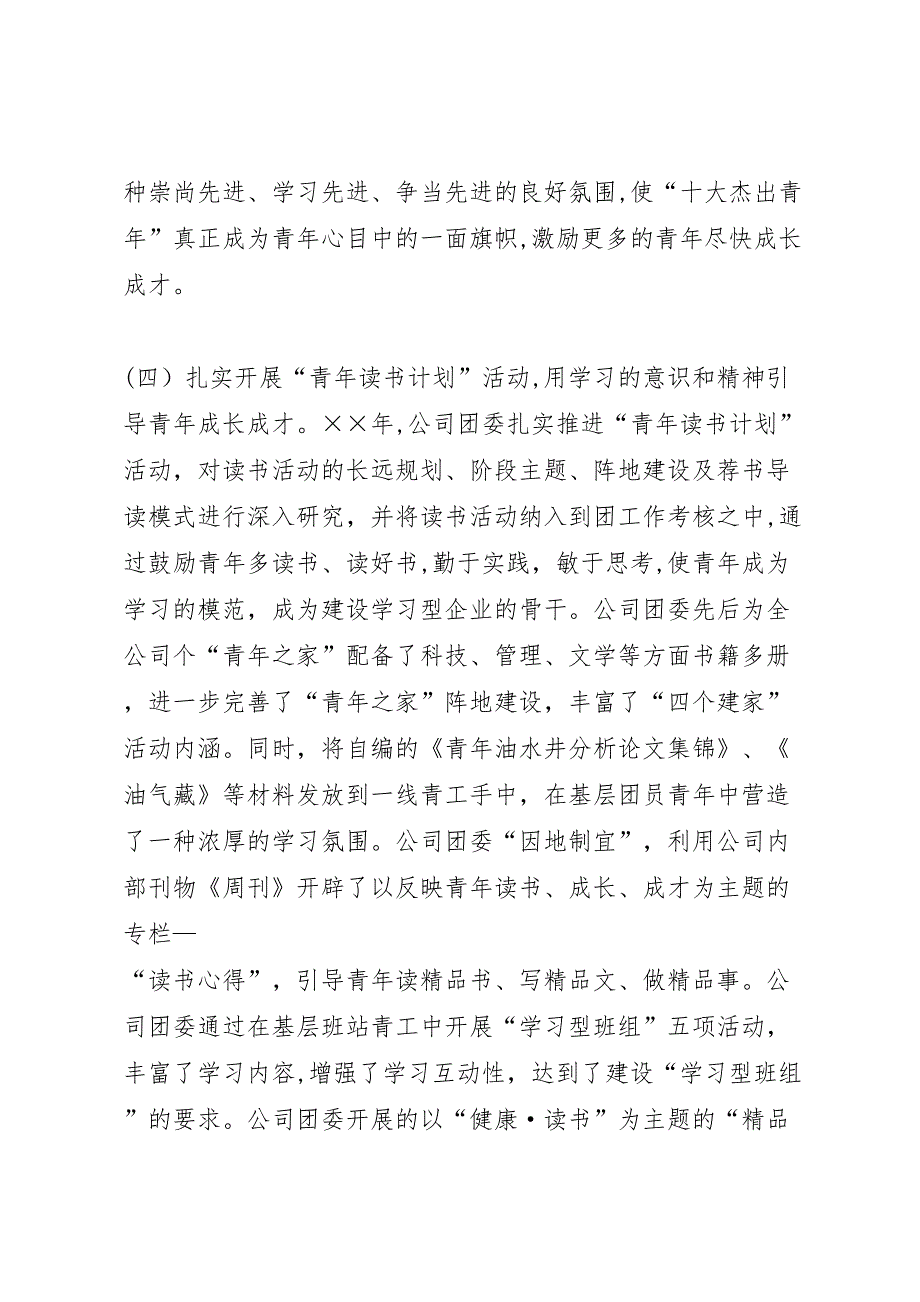 种崇尚先进、学习先进、争当先进的良好氛围,使“十大杰出青
年”真正成为青年心目中的一面旗帜,激励更多的青年尽快成长
成才。
(四）扎实开展“青年读书计划”活动,用学习的意识和精神引
导青年成长成才。××年,公司团委扎实推进“青年读书计划”
活动，对读书活动的长远规划、阶段主题、阵地建设及荐书导
读模式进行深入研究，并将读书活动纳入到团工作考核之中,通
过鼓励青年多读书、读好书,勤于实践，敏于思考,使青年成为
学习的模范，成为建设学习型企业的骨干。公司团委先后为全
公司个“青年之家”配备了科技、管理、文学等方面书籍多册
，进一步完善了“青年之家”阵地建设，丰富了“四个建家”
活动内涵。同时，将自编的《青年油水井分析论文集锦》、《
油气藏》等材料发放到一线青工手中，在基层团员青年中营造
了一种浓厚的学习氛围。公司团委“因地制宜”，利用公司内
部刊物《周刊》开辟了以反映青年读书、成长、成才为主题的
专栏—
“读书心得”，引导青年读精品书、写精品文、做精品事。公
司团委通过在基层班站青工中开展“学习型班组”五项活动，
丰富了学习内容,增强了学习互动性，达到了建设“学习型班组
”的要求。公司团委开展的以“健康·读书”为主题的“精品